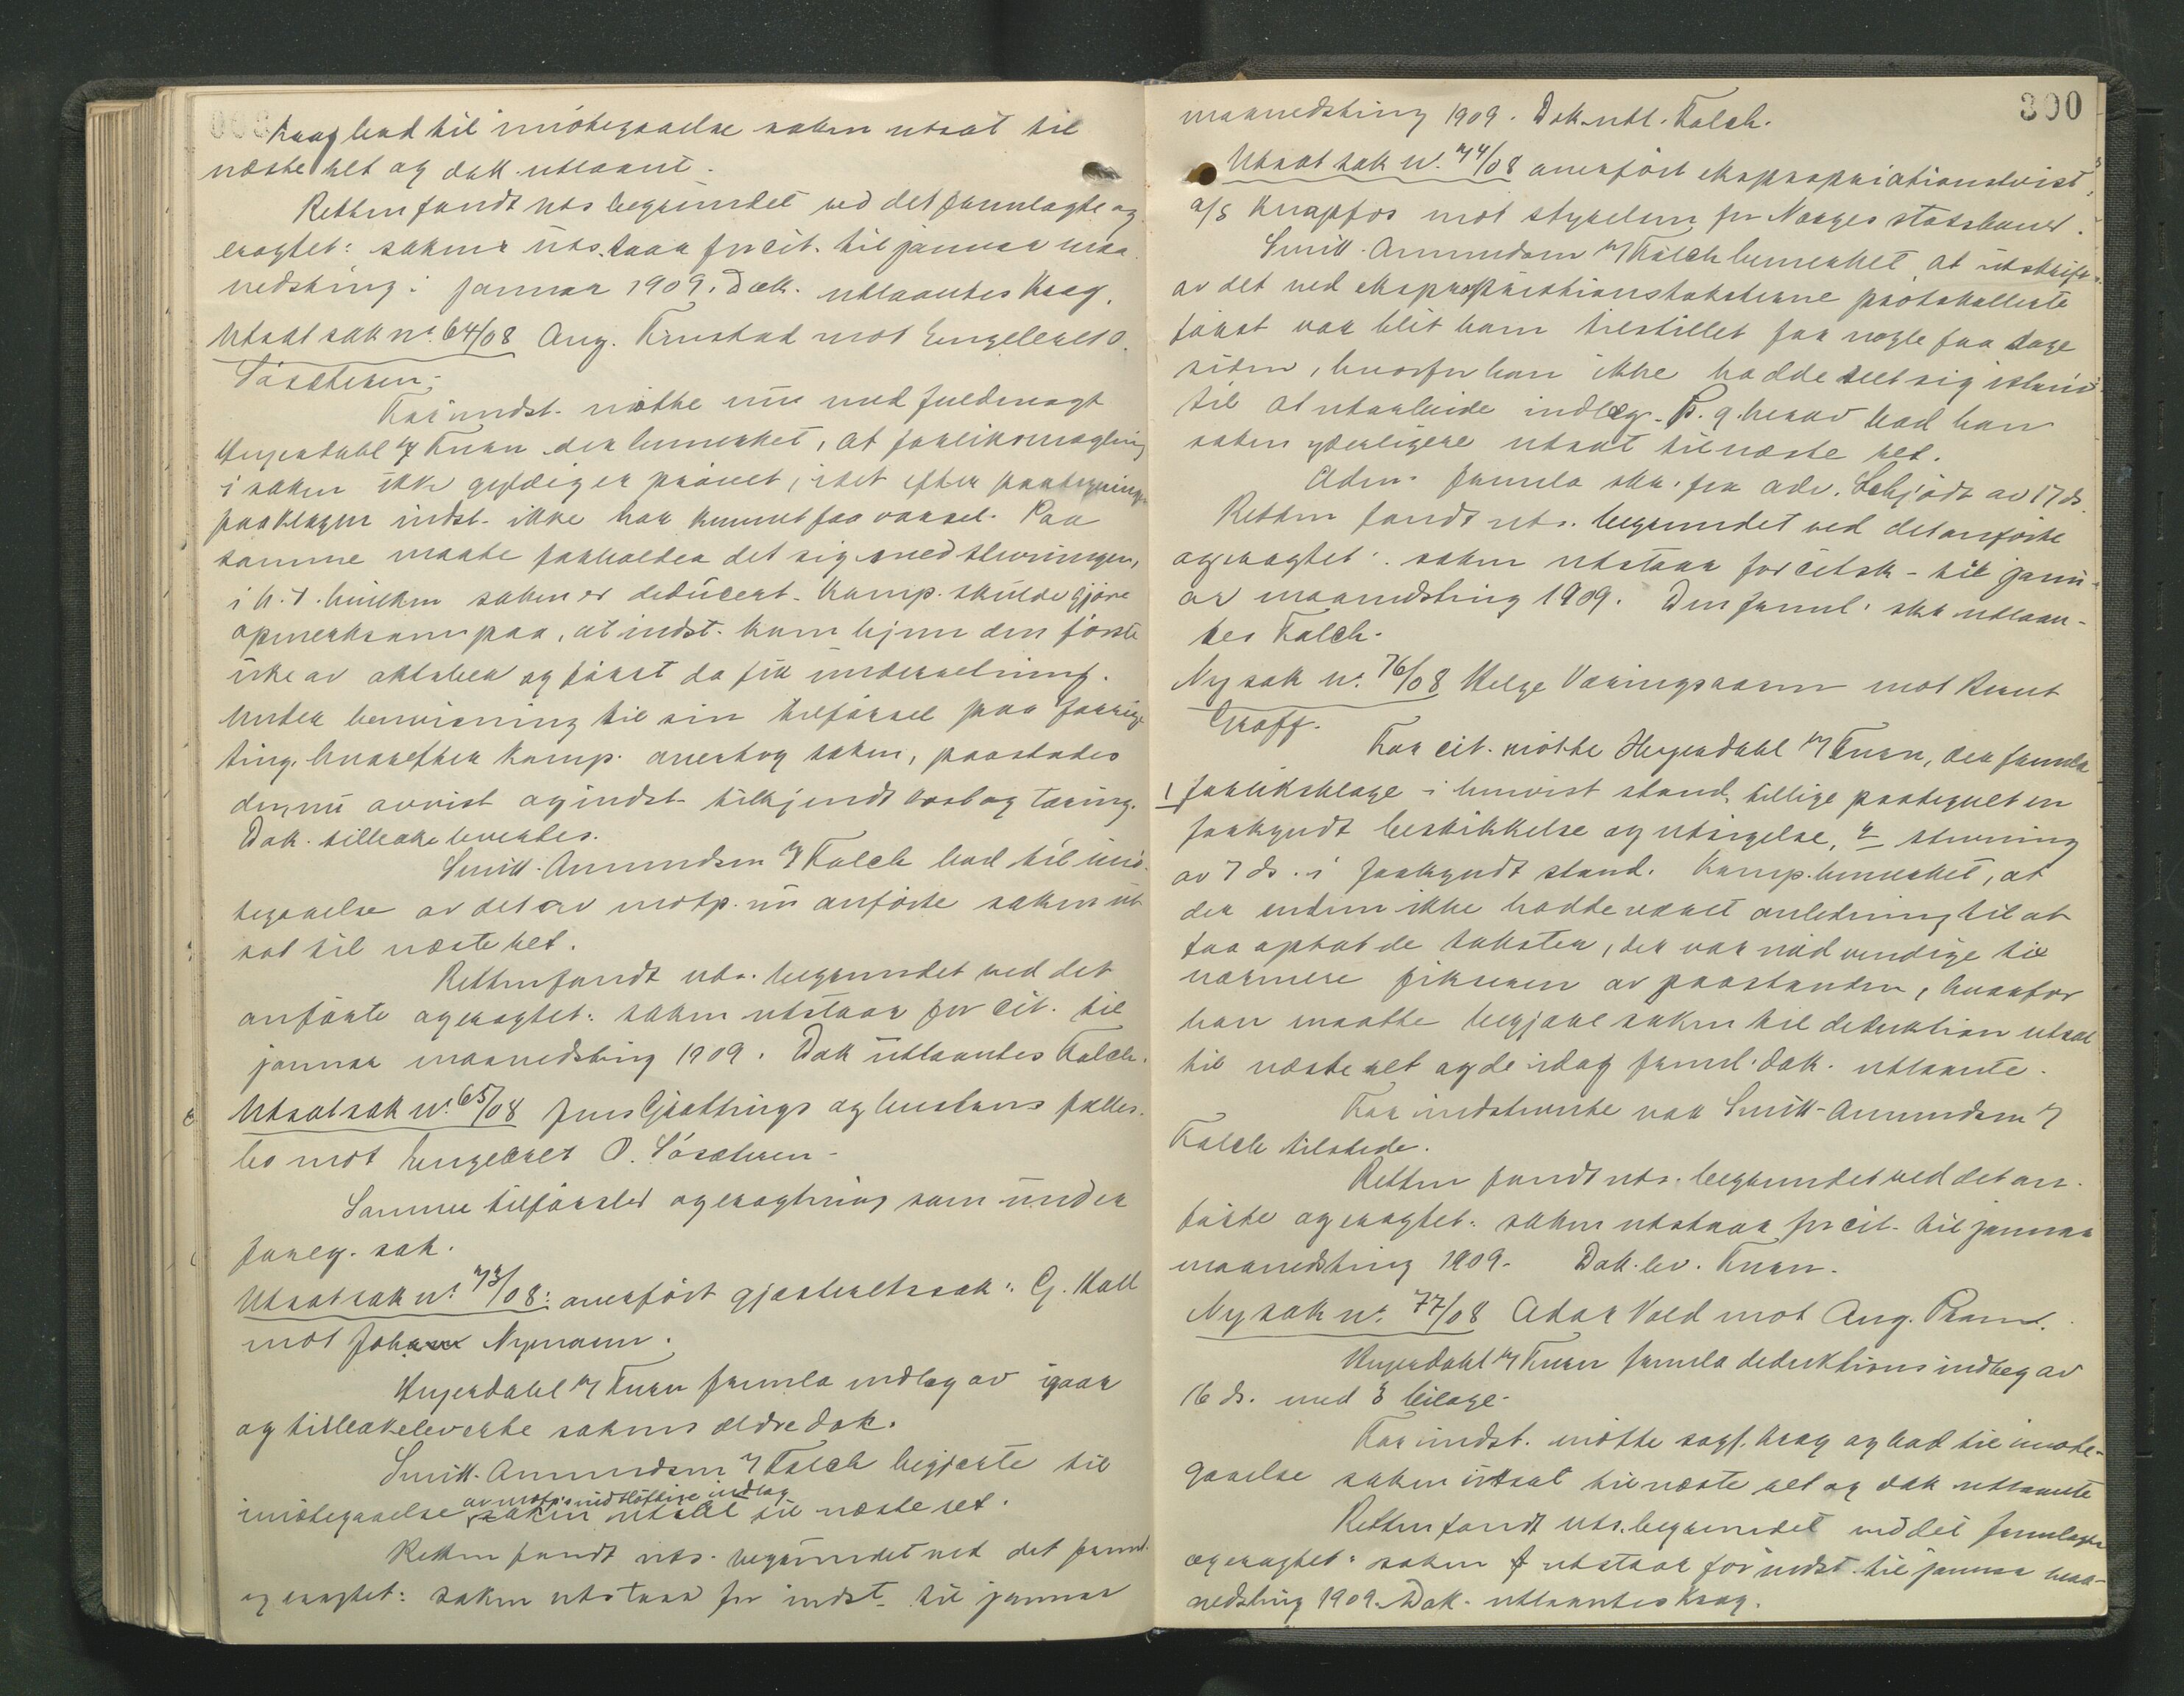 Krag bad til imøtegaaelse saken utsat til
næste ret og dok. utlaant.
Retten fandt uts. begrundet ved det fremlagte og
eragtet: saken utstaar for cit. til januar maa
nedsting: januar 1909. Dok. utlaantes Krag.
Utsat sak nr. 64/08 Aug. Trustad mot Engelbret O.
Søschren:
For indst. møtte nu med fuldmagt
Heyerdahl v/ Furu der bemerket, at forliksmægling
i saken ikke gyldig er prøvet, idet efter paategning
paa klagen indst. ikke har kunnet faa varsel. Paa
samme maate forholder det sig med stevningen,
i h. t. hvilken saken er deducert. Komp. skulde gjøre
opmerksom paa, at indst. kom hjem den første
uke av oktober og først da fik underretning.
Under henvisning til sin tilførsel paa forrige
ting, hvorefter komp. overtog saken, paastodes
den nu avvist og indst. tilkjendt kost og tæring.
Dok. tilbakelevertes.
Smith-Amundsen v/ Falch bad til imø-
tegaaelse av det av motp. nu anførte saken ut
sat til næste ret.
Retten fandt uts. begrundet ved det
anførte og eragtet: saken utstaar for cit. til
januar maanedsting 1909. Dok utlaantes Falch.
Utsat sak nr. 65/08 Jens Gjøttrings og hustrus fælles-
bo mot Engebret O. Søschren.
Samme tilførsler og eragtning som under
foreg. sak.
Utsat sak nr. 73/08: overført gjæsteretssak: G. Hall
mot Johan Nymann.
Heyerdahl v/ Furu fremla indlæg av igaar
og tilbakeleverte sakens ældre dok.
Smith-Amundsen v/ Falch begjærte til
av motp.s vidtløftige indlæg
imøtegaaelse saken utsat til næste ret.
Retten fandt uts. begrundet ved det freml.
og eragtet: saken utstaar for indst. til januar
300
maanedsting 1909. Dok. utl. Falch.
Utsat sak nr. 74/08 overført ekspropriationstvist,
a/s Knapfos mot styrelsen for Norges statsbaner.
Smith-Amundsen v/ Falch bemerket, at utskrift
av det ved ekspropriationstaksterne protokollerte
først var blit ham tilstillet for nogle faa dage
siden, hvorfor han ikke hadde seet sig istand
til at utarbeide indlæg. P. g. herav bad han
saken yderligere utsat til næste ret.
Adm. fremla skr. fra adv. Schjødt av 17 ds.
Retten fandt uts. begrundet ved det anførte
og eragtet: saken utstaar for citsk. til janu-
ar maanedsting 1909. Den freml. skr. utlaan-
tes Falch.
Ny sak nr. 76/08 Helge Væringsaasen mot Knut
Graff.
For cit. møtte Heyerdahl v/ Furu, der fremla
1 forliksklage i henvist stand, tillige paategnet en
forkyndt beskikkelse og utsigelse, 2 stevning
av 7 ds. i forkyndt stand. Komp. bemerket, at
der endnu ikke hadde været anledning til at
faa optat de takster, der var nødvendige til
nærmere fiksering av paastanden, hvorfor
han maatte begjære saken til deduktion utsat
til næste ret og de idag freml. dok. utlaante.
For indstevnte var Smith-Amundsen v/
Falch tilstede.
Retten fandt uts. begrundet ved det an-
førte og eragtet: saken utstaar for cit. til januar
maanedsting 1909. Dok. lev. Furu.
Ny sak nr. 77/08 Adar Vold mot Aug. Pram.
Heyerdahl v/ Furu fremla deduktionsindlæg av
16 ds. med 3 bilage.
For indst. møtte sagf. Krag og bad til imøte-
gaaelse saken utsat til næste ret og dok utlaante
Retten fandt uts. begrundet ved det fremlagte
og eragtet: saken utstaar for indst. til januar maa-
nedsting 1909. Dok. utlaantes Krag.